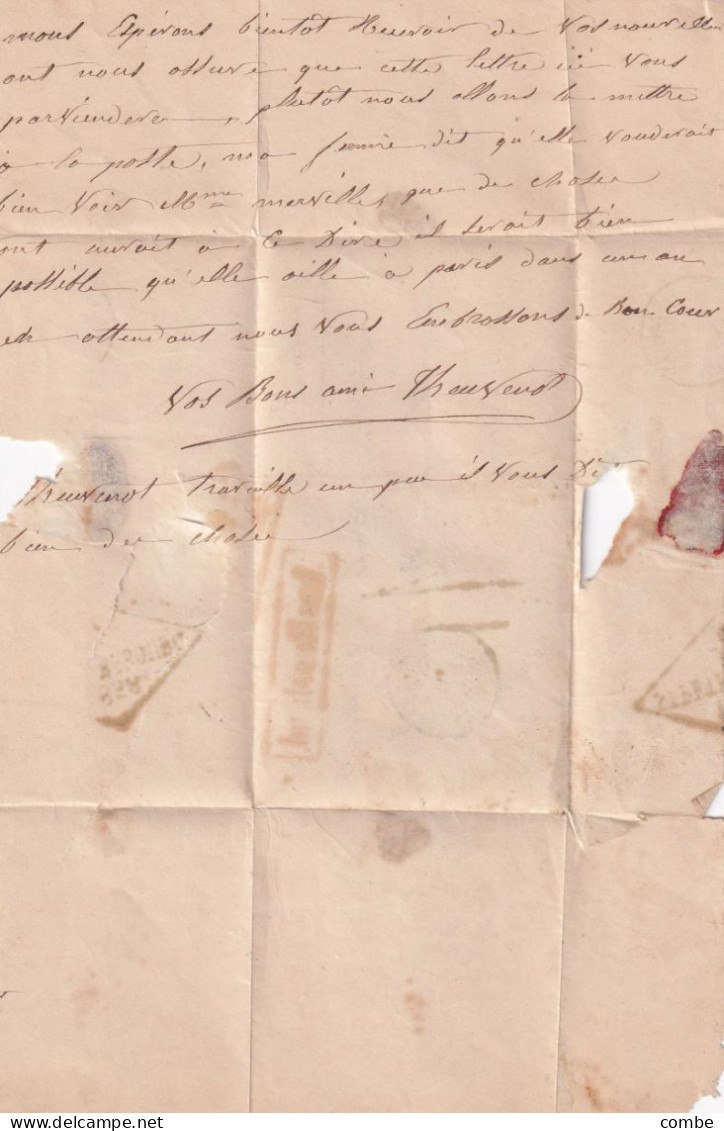 nous Espérons bientot Recevoir de Vos nouvelles
ont nous assure que cette lettre ici vous
parviendera, plutôt nous allons la mettre
à la poste, ma femme dit qu'elle vouderait
bien Voir Mme merville, que de chose
ont aurait à ce Dire il serait bien
possible qu'elle aille à paris dans un an
en attendant nous Vous Embrassons de Bon Coeur
Vos Bons ami Theuvenot
Theuvenot travaille un peu il Vous Dit
bien des chose
combe